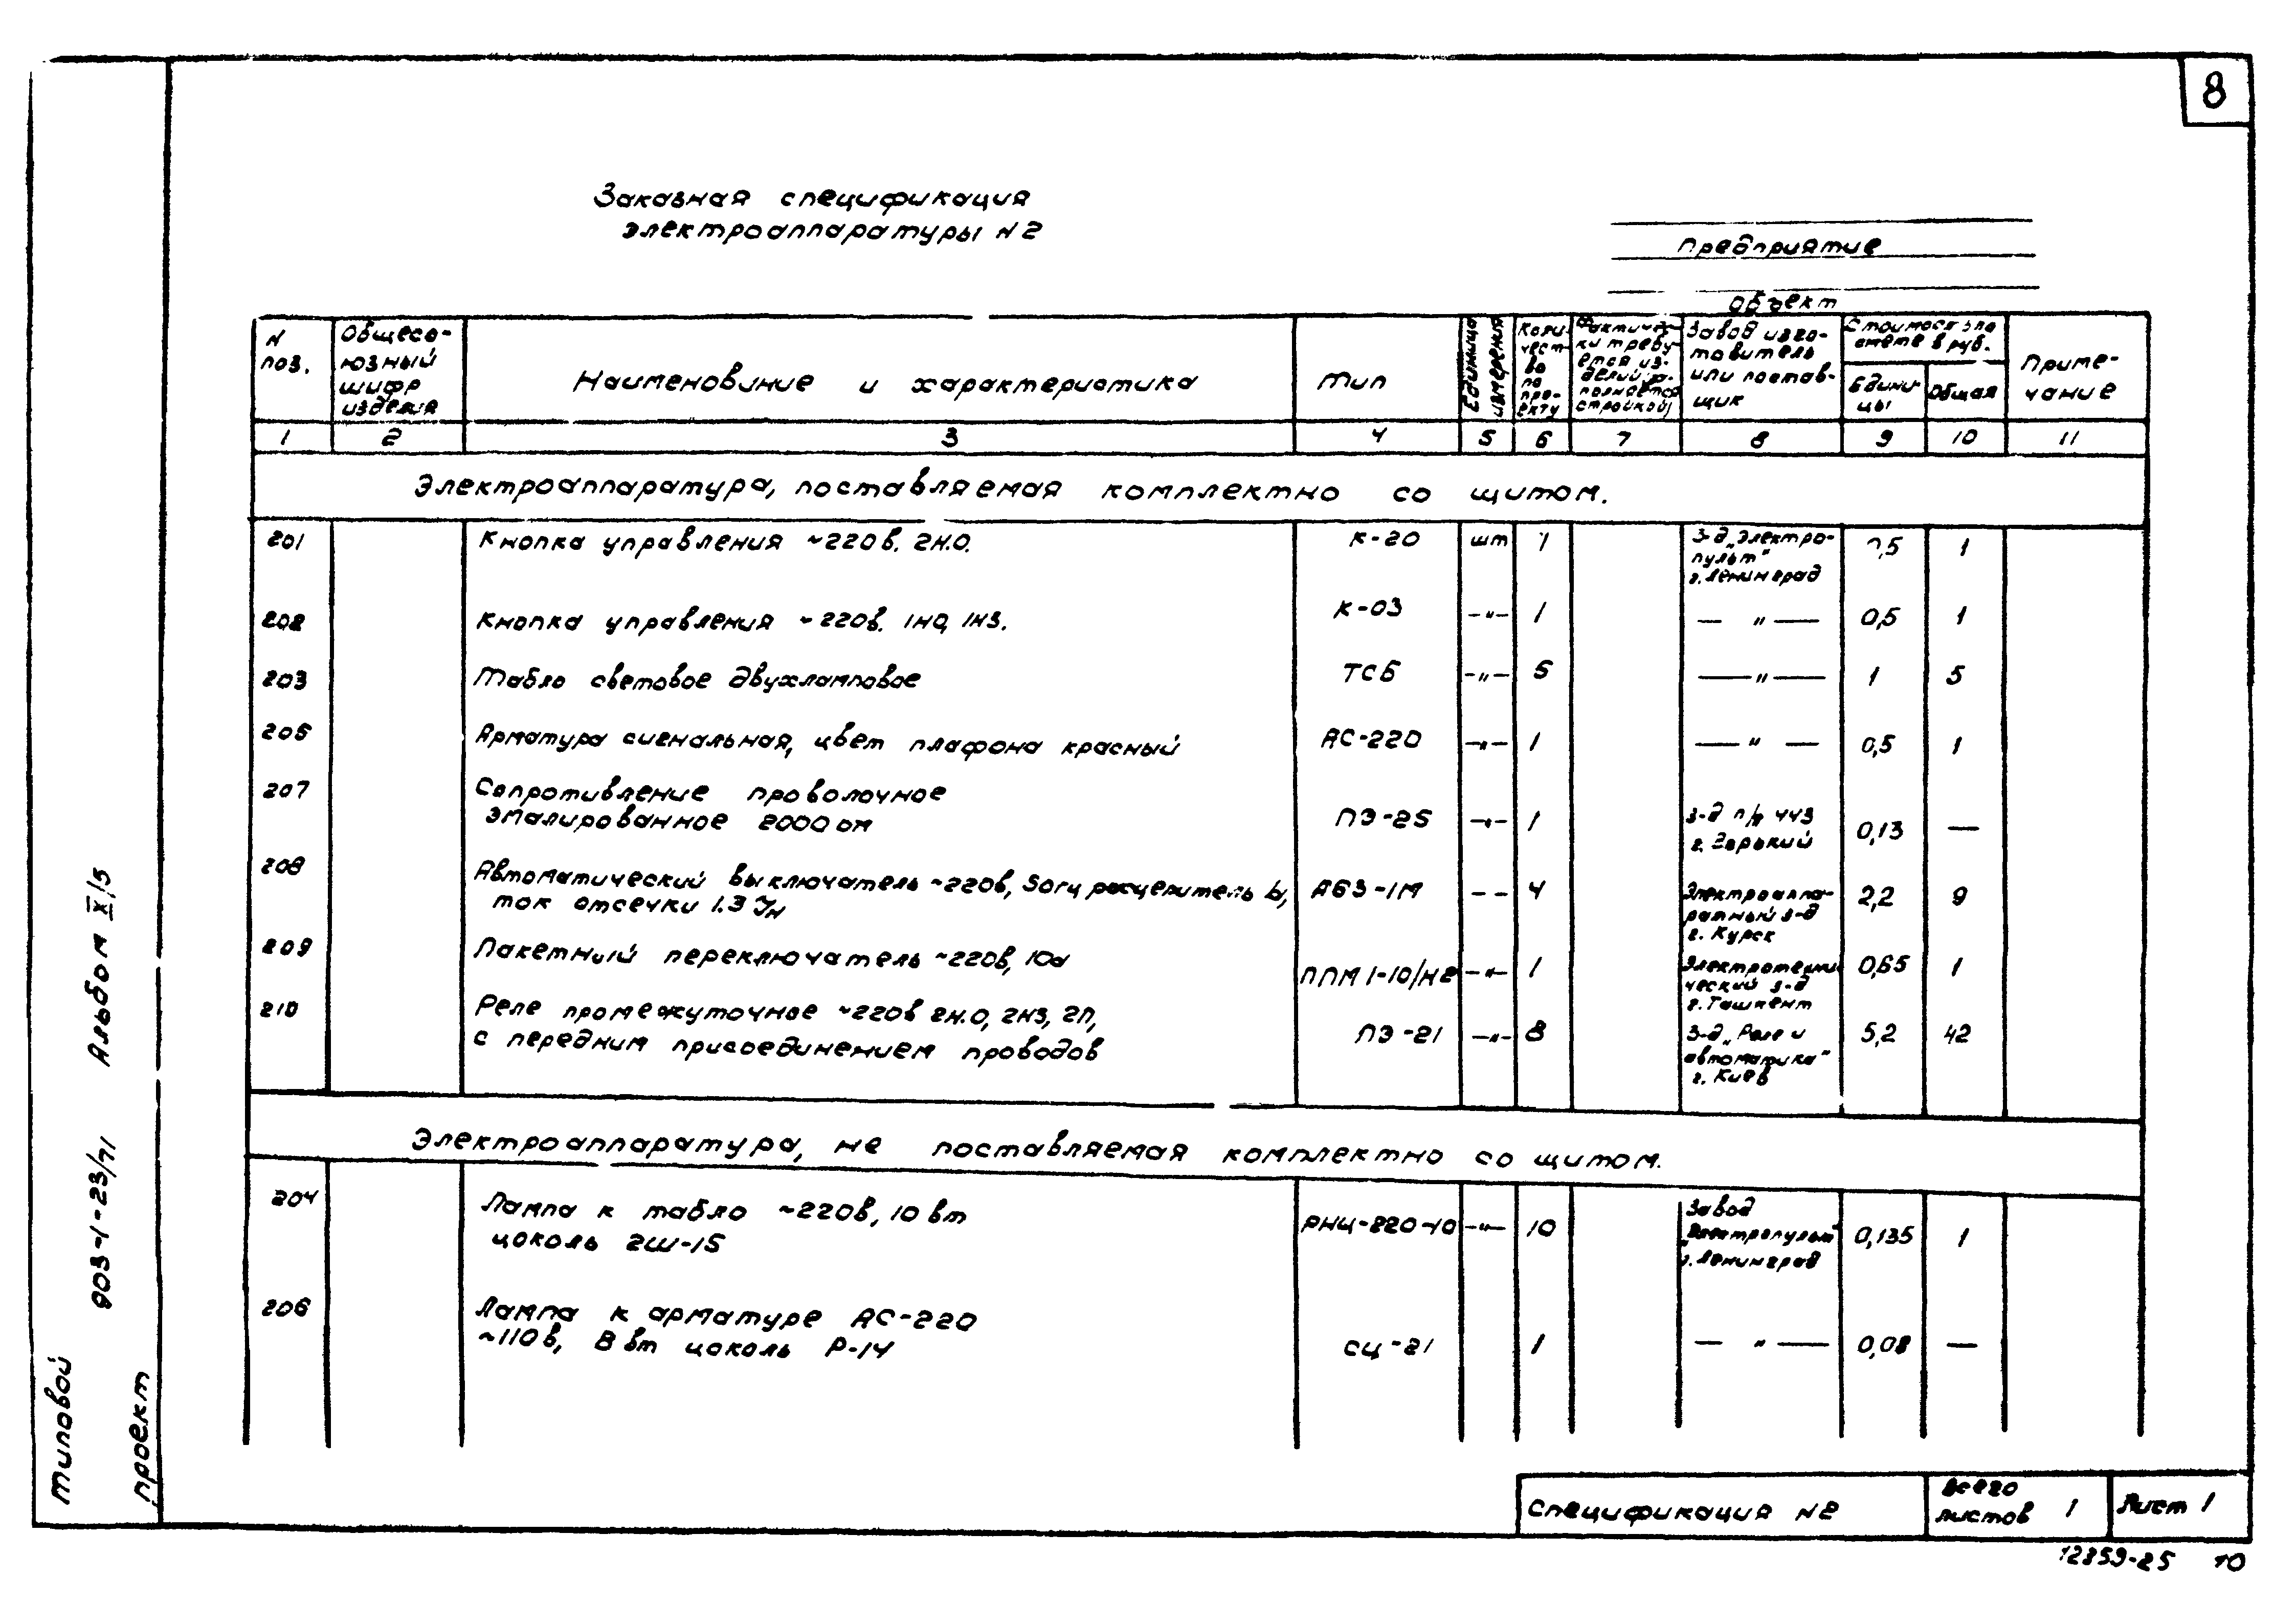 8
Заказная спецификация
электроаппаратуры N2
предприятие
объект
N поз.
Общесоюзный шифр изделия
Наименование и характеристика
Тип
Единица измерения
Количество по проекту
Завод изготовитель или поставщик
Стоимость по смете в руб.
Единицы
Общая
Примечание
1 2 3 4 5 6 7 8 9 10 11
Электроаппаратура, поставляемая комплектно со щитом.
201 Кнопка управления ~220в. 2н.о. К-20 шт 1 з-д „Электропульт" г. Ленинград 0,5 1
202 Кнопка управления ~220в. 1но, 1нз. К-03 -"- 1 — " — 0,5 1
203 Табло световое двухламповое ТСБ -"- 5 — " — 1 5
205 Арматура сигнальная, цвет плафона красный АС-220 -"- 1 — " — 0,5 1
207 Сопротивление проволочное
эмалированное 2000 ом ПЭ-25 -"- 1 з-д п/я 443 г. Горький 0,13 —
208 Автоматический выключатель ~220в, 50гц расцепитель
ток отсечки 1.3 Iн А63-1М - - 4 Электроаппаратный з-д г. Курск 2,2 9
209 Пакетный переключатель ~220в, 10а ППМ 1-10/н2 -"- 1 Электротехнический з-д г. Ташкент 0,65 1
210 Реле промежуточное ~220в 2н.о, 2нз, 2п,
с передним присоединением проводов ПЭ-21 -"- 8 з-д „Реле и автоматика" г. Киев 5,2 42
Электроаппаратура, не поставляемая комплектно со щитом.
204 Лампа к табло ~220в, 10 вт
цоколь 2Ш-15 РНЦ-220-10 -"- 10 Завод „Электропульт" г. Ленинград 0,135 1
206 Лампа к арматуре АС-220
~110в, 8 вт цоколь Р-14 СЦ-21 1 — " — 0,08 —
Типовой проект
903-1-23/71
Альбом X/5
Спецификация N2
Всего листов 1
Лист 1
12859-25 10